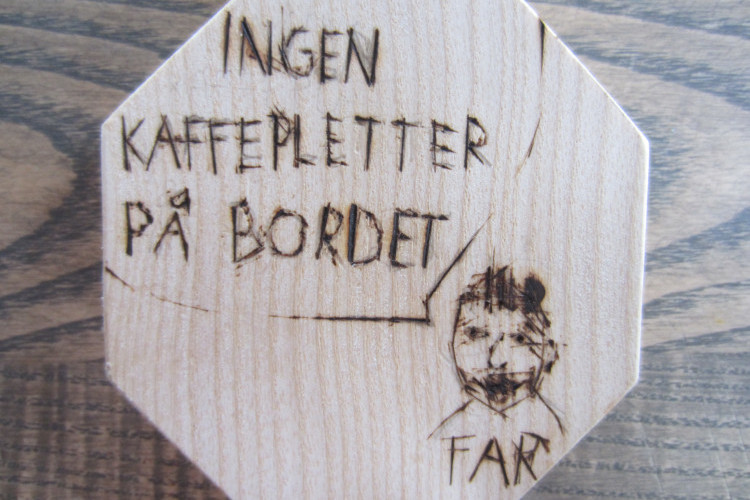 INGEN
KAFFEPLETTER
PÅ BORDET
FAR